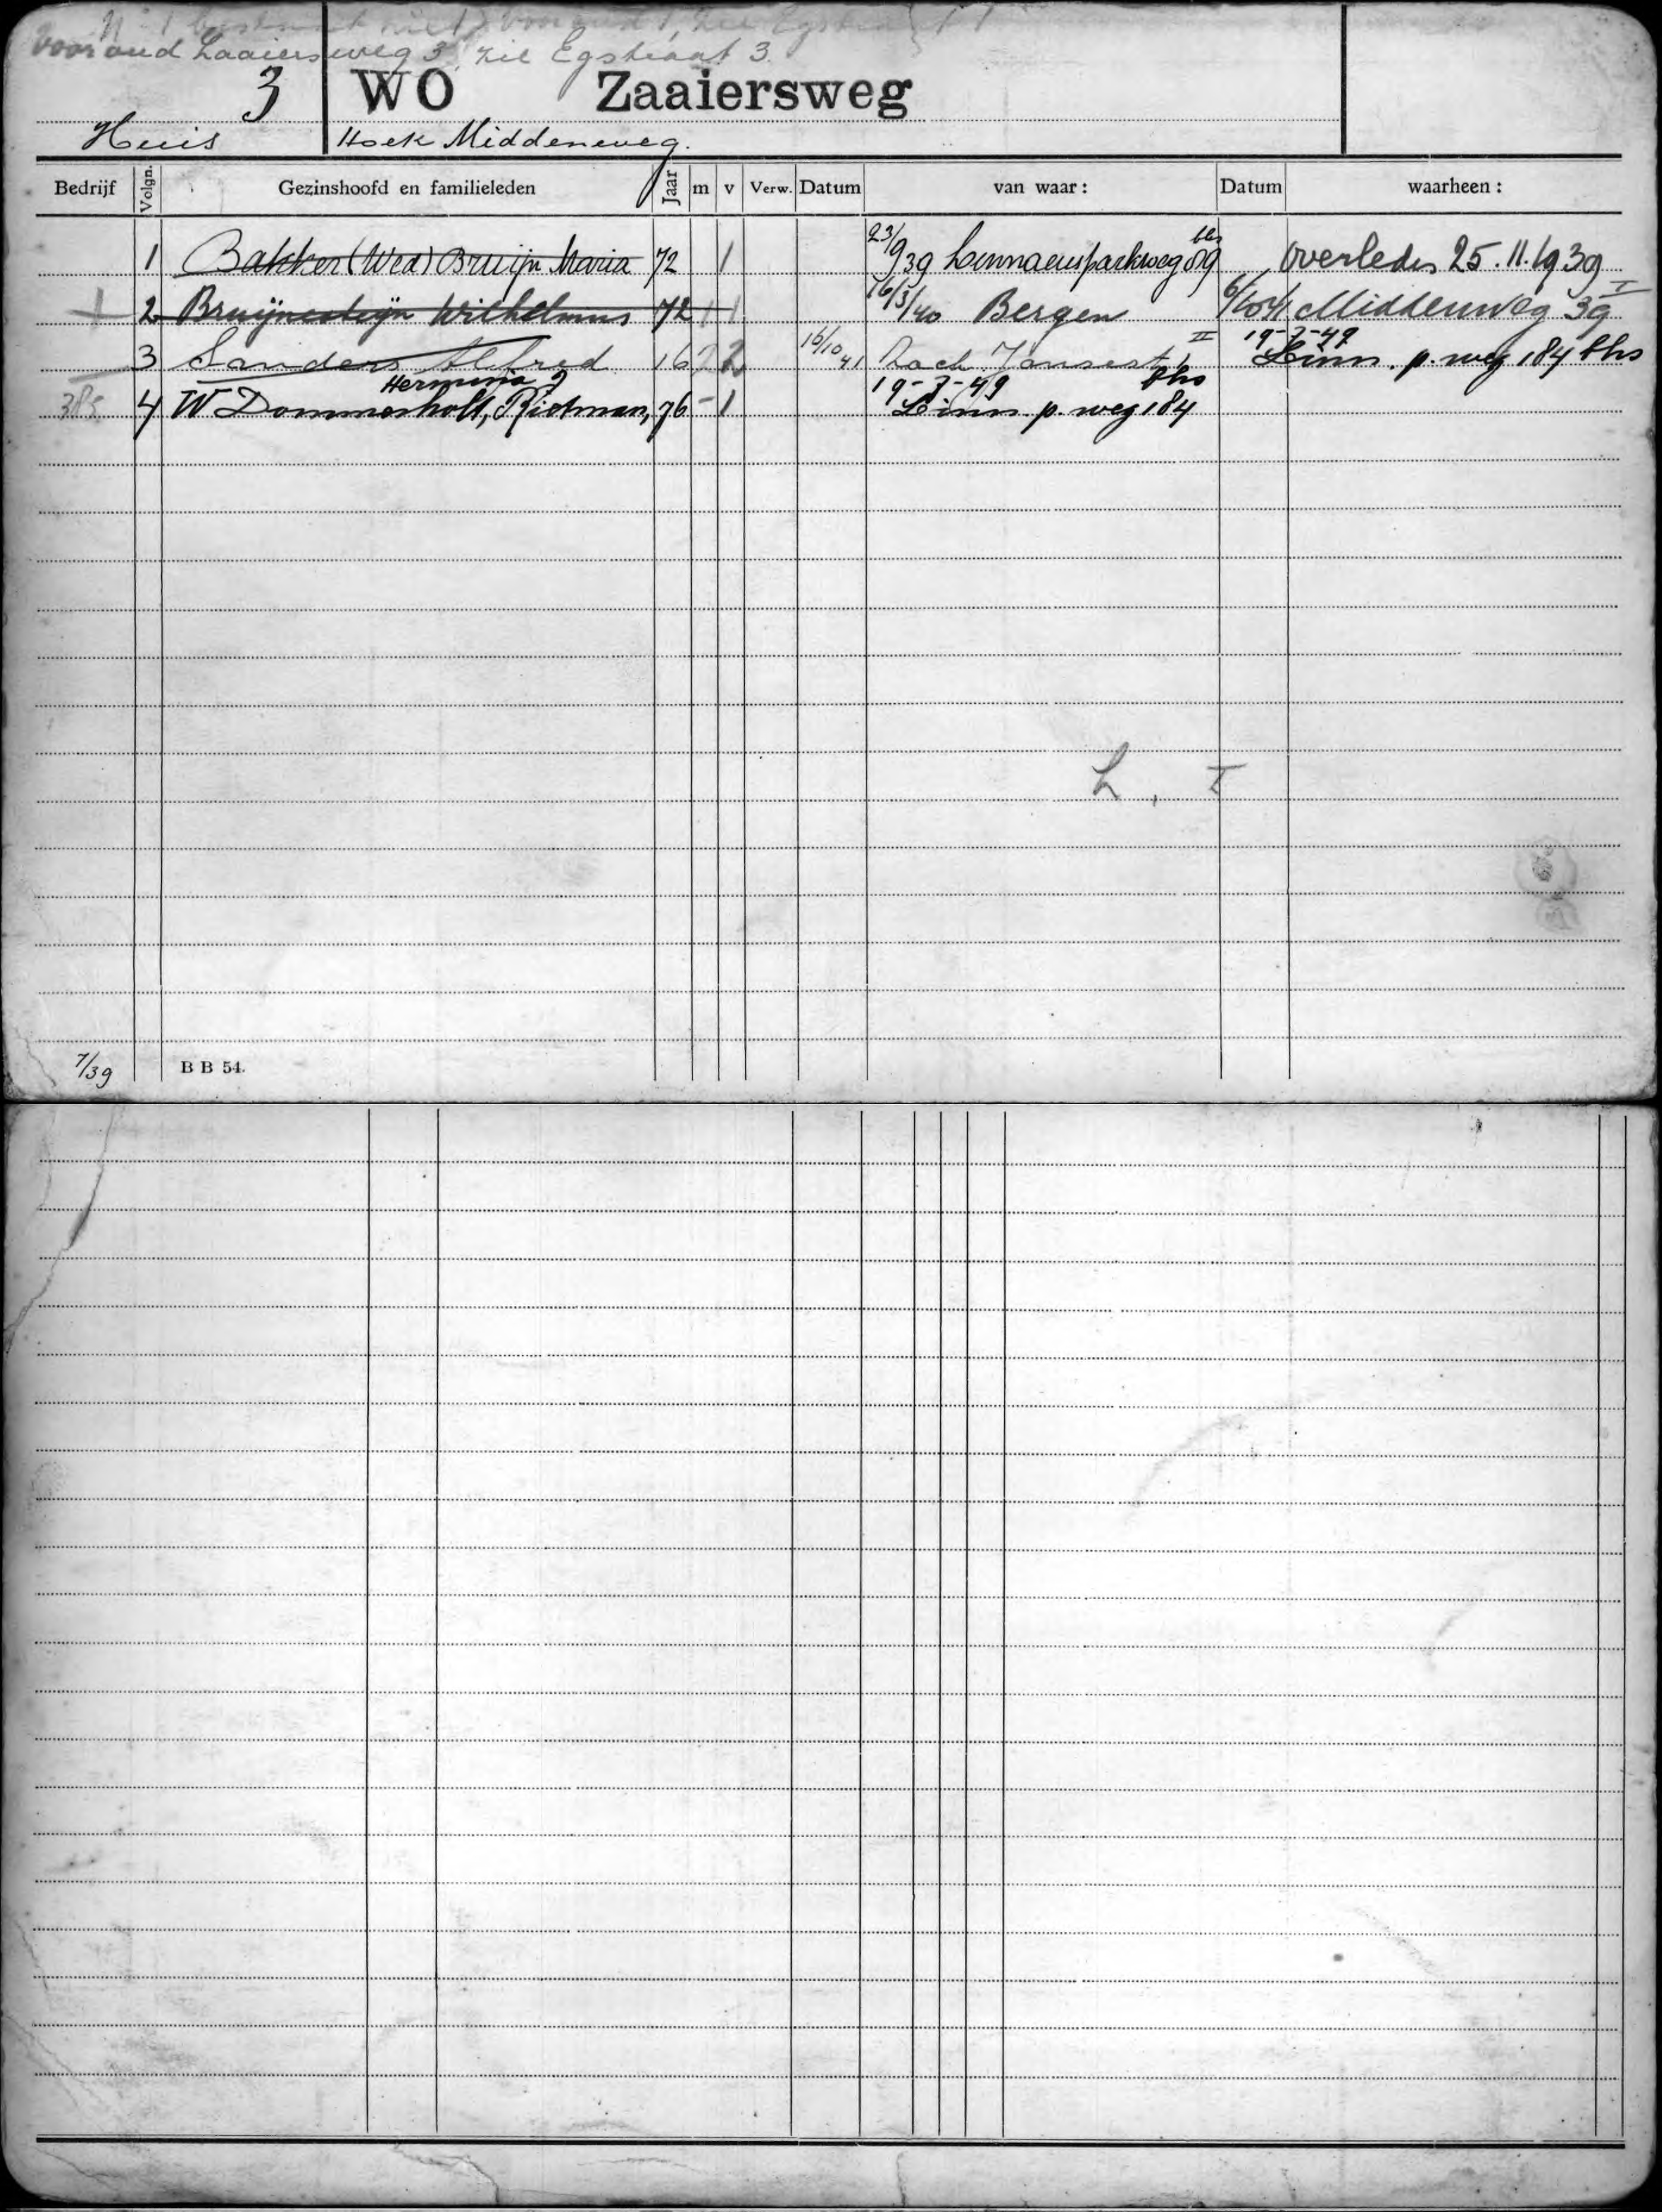 voor oud Zaaiersweg 3, zie Egstraat 3.
3 WO Zaaiersweg
Huis Hoek Middenweg.
Bedrijf Volgn. Gezinshoofd en familieleden Jaar m v Verw. Datum van waar: Datum waarheen:
1 Bakker (Wed) Bruijn Maria 72 1 23/9 39 Linnaeusparkweg 89 bhs overleden 25.11.1939
2 Bruijnesteijn Wilhelmus 72 1 1 16/3/40 Bergen 6/10 41 Middenweg 39 I
3 Sanders Alfred 16 2 2 16/10 41 Zach. Jansestr II 19-7-49 Linn. p. weg 184 bhs
385 4 W Dommerholt, Rietman, Hermina J 76 - 1 19-7-49 Linn. p. weg 184 bhs
L. I
7/39 B B 54.